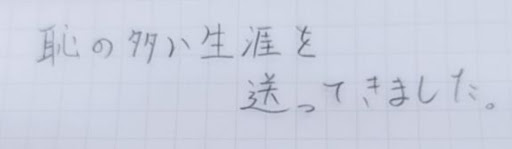 恥の多い生涯を
送ってきました。